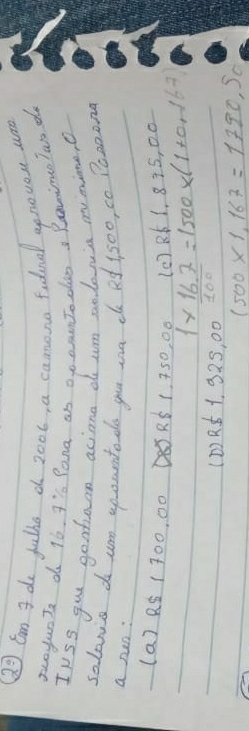 2º) Em 7 de julho de 2006, a camara Federal aprovou um
reajuste de 16,7% Para os aposentados e Pensionistas do
INSS que ganham acima de um salario minimo. O
Salario de um aposentado que era de R$ 1,500,00 Passara
a ser:
(a) R$ 1700,00 (B) R$ 1.750,00 (c) R$ 1.875,00
1+ 16,7/100 = 1500 x (1+0,167)
(D) R$ 1.925,00
1500 x 1,167 = 1750,50